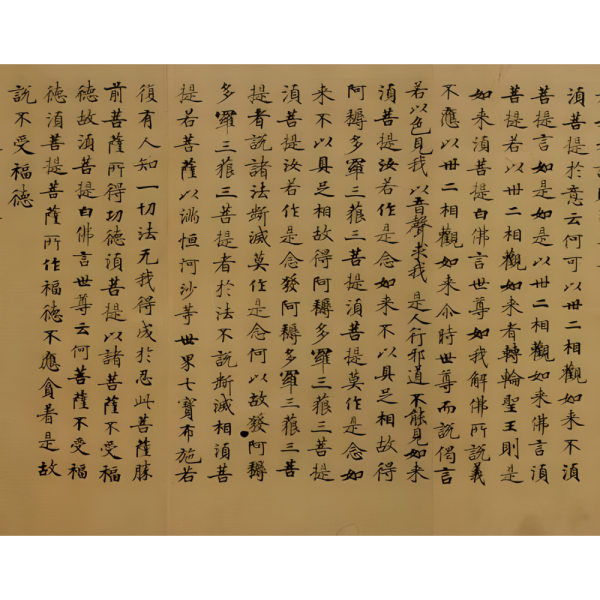 湏菩提於意云何可以卅二相觀如来不湏
菩提言如是如是以卅二相觀如来佛言湏
菩提若以卅二相觀如来者轉輪聖王則是
如来湏菩提白佛言世尊如我解佛所說義
不應以卅二相觀如来尒時世尊而說偈言
若以色見我以音聲求我是人行邪道不能見如来
湏菩提汝若作是念如来不以具足相故得
阿耨多羅三藐三菩提湏菩提莫作是念如
来不以具足相故得阿耨多羅三藐三菩提
湏菩提汝若作是念發阿耨多羅三藐三菩
提者說諸法断滅莫作是念何以故發阿耨
多羅三藐三菩提者於法不說断滅相湏菩
提若菩薩以滿恒河沙等世界七寶布施若
復有人知一切法无我得成於忍此菩薩勝
前菩薩所得功德湏菩提以諸菩薩不受福
德故湏菩提白佛言世尊云何菩薩不受福
德湏菩提菩薩所作福德不應貪著是故
說不受福德